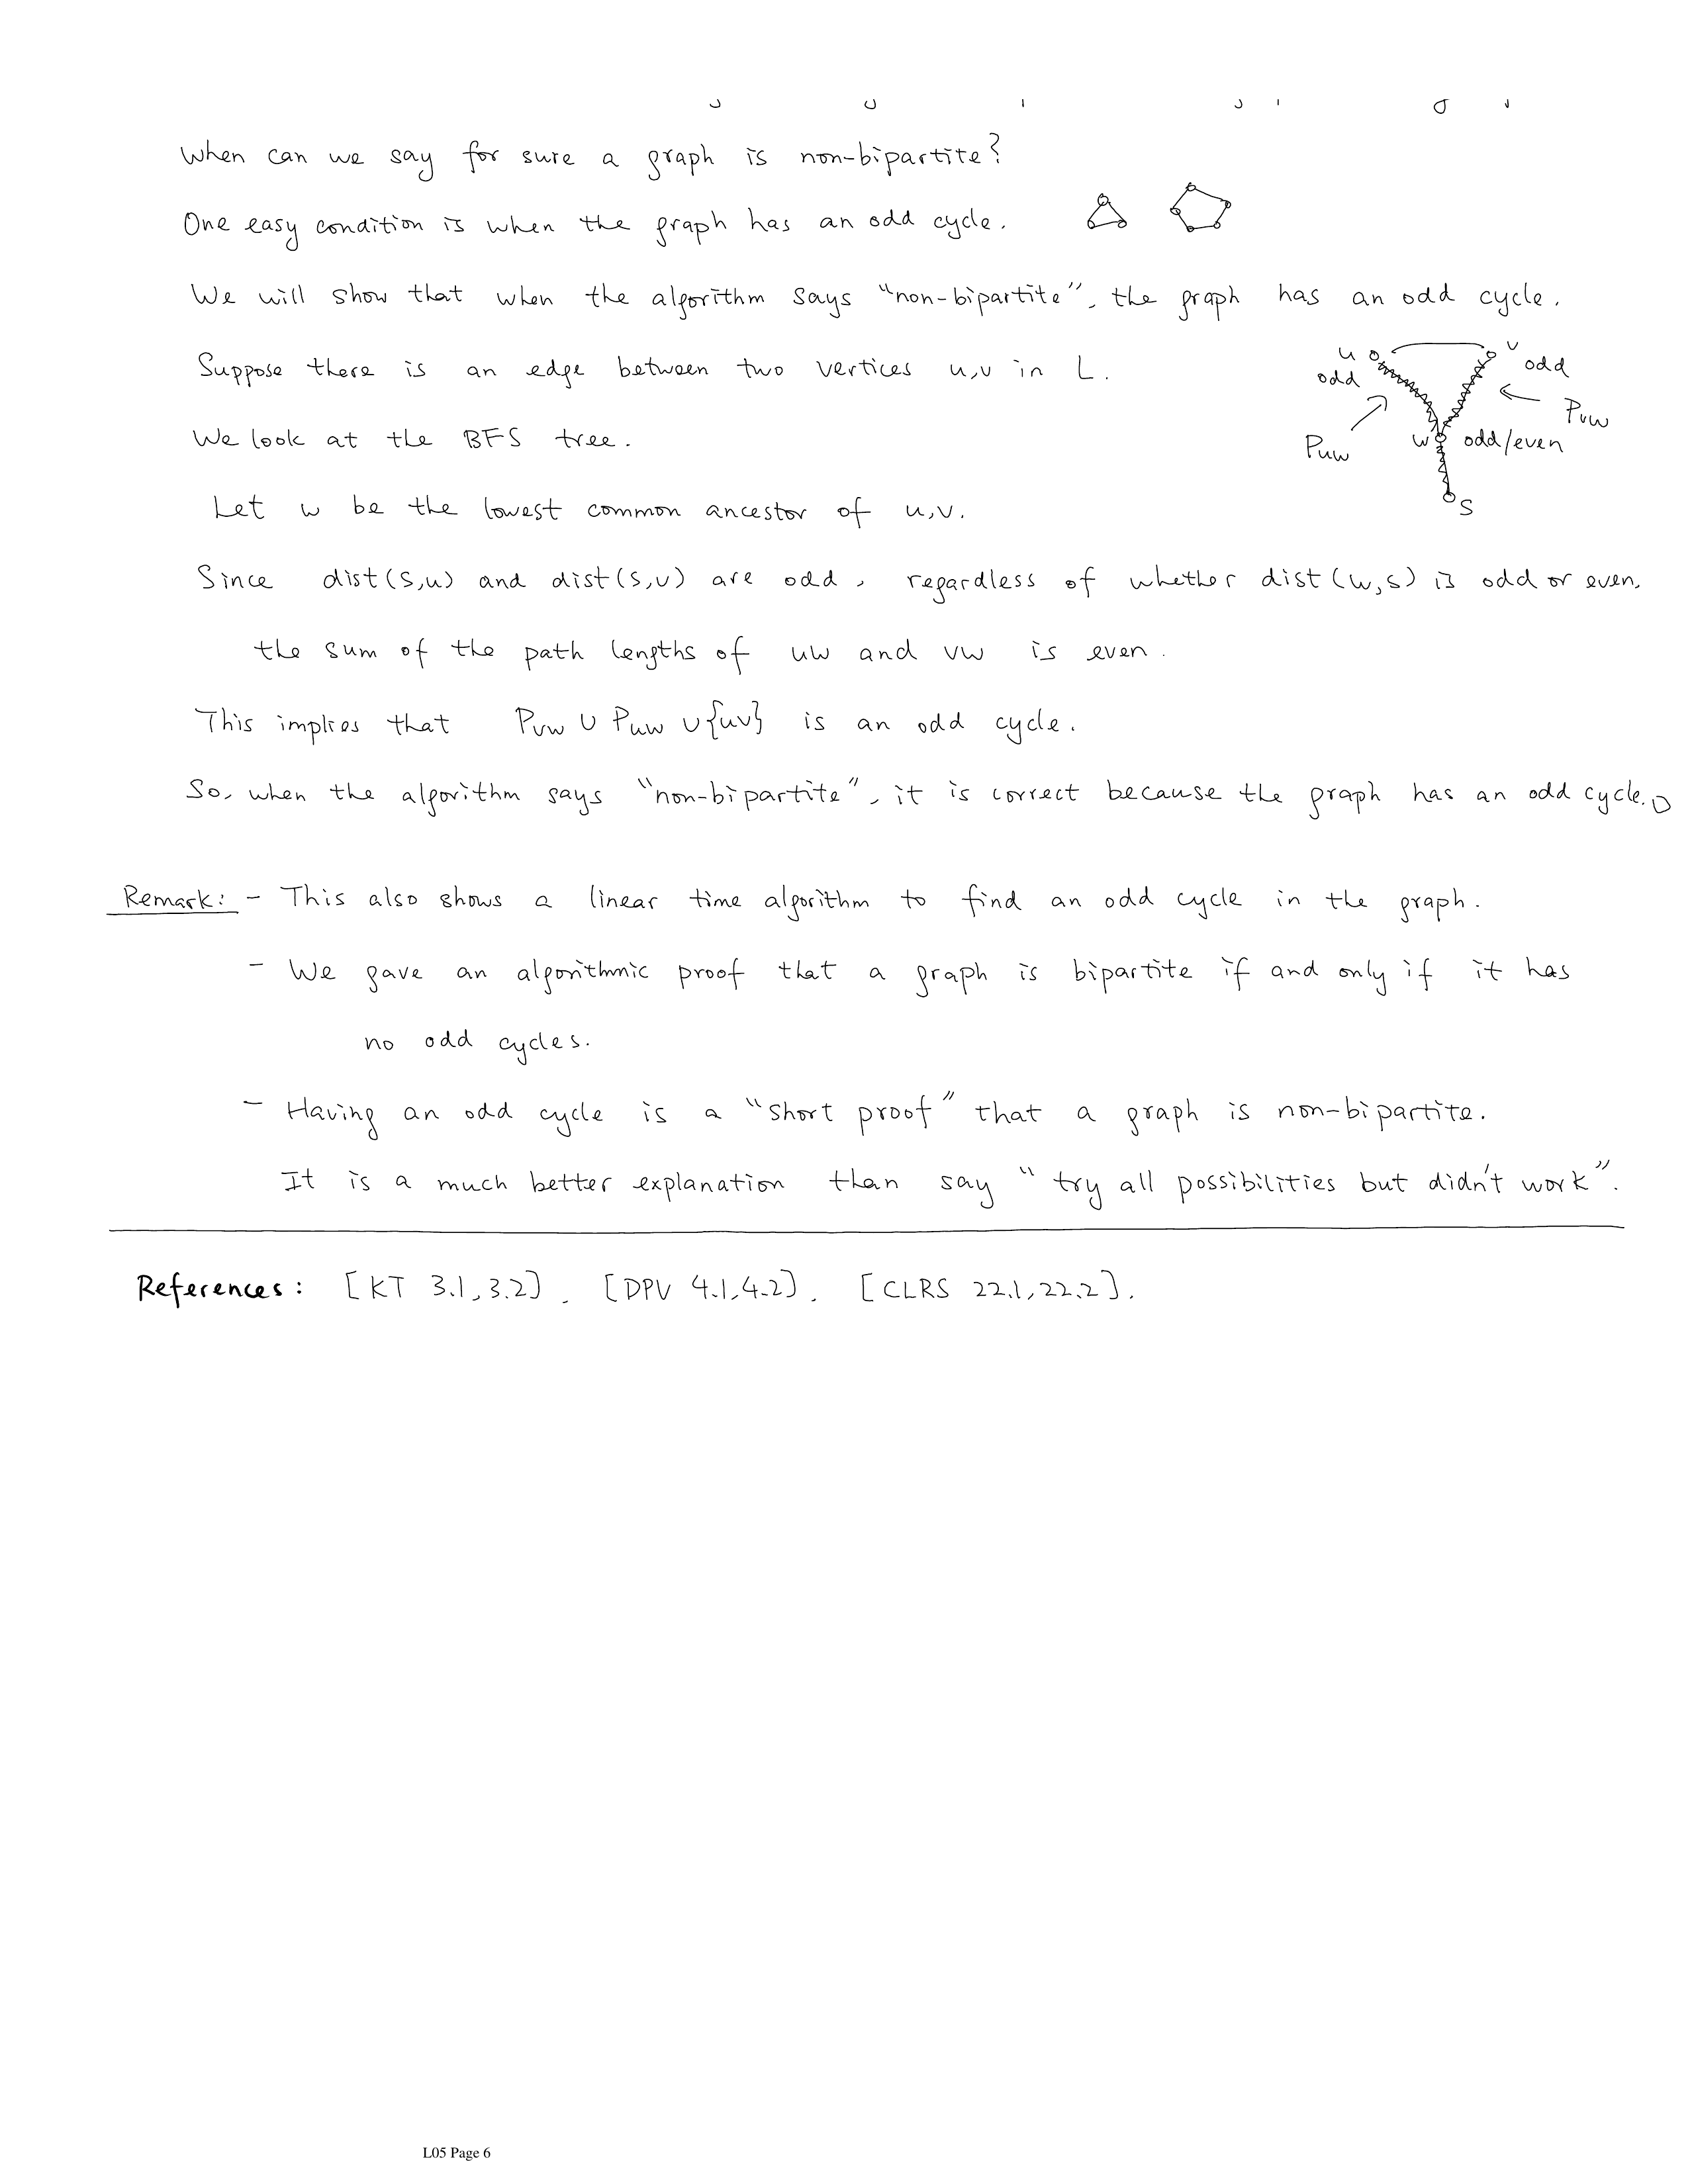 When can we say for sure a graph is non-bipartite?
One easy condition is when the graph has an odd cycle.
We will show that when the algorithm says "non-bipartite", the graph has an odd cycle.
Suppose there is an edge between two vertices u,v in L.
u
v
odd
odd
Pvw
We look at the BFS tree.
w odd/even
Puw
s
Let w be the lowest common ancestor of u,v.
Since dist(s,u) and dist(s,v) are odd, regardless of whether dist(w,s) is odd or even,
the sum of the path lengths of uw and vw is even.
This implies that Pvw ∪ Puw ∪ {uv} is an odd cycle.
So, when the algorithm says "non-bipartite", it is correct because the graph has an odd cycle. □
Remark: - This also shows a linear time algorithm to find an odd cycle in the graph.
- We gave an algorithmic proof that a graph is bipartite if and only if it has
no odd cycles.
- Having an odd cycle is a "short proof" that a graph is non-bipartite.
It is a much better explanation than say "try all possibilities but didn't work".
References: [KT 3.1,3.2], [DPV 4.1,4.2], [CLRS 22.1,22.2].
L05 Page 6